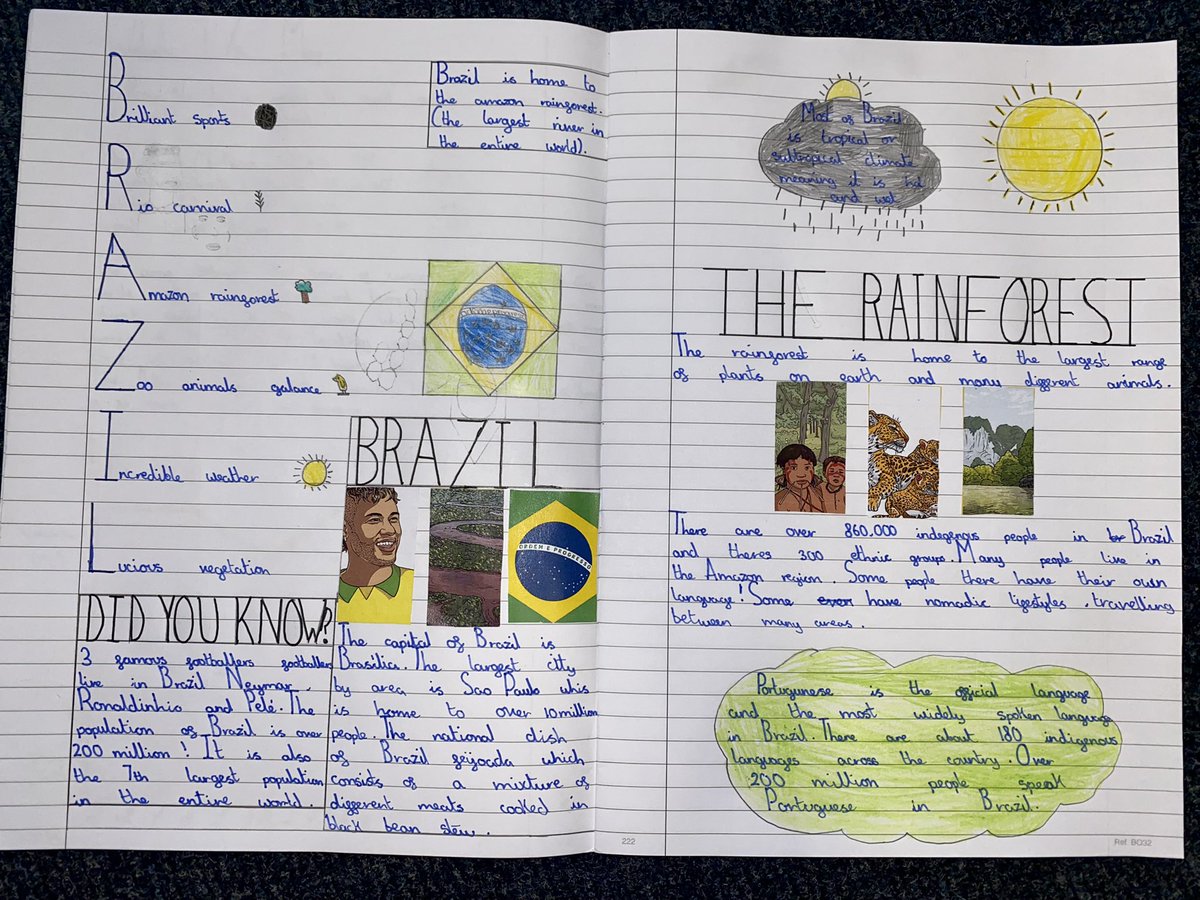 Brilliant sports
Rio carnival
Amazon raingorest
Zoo animals galance
Incredible weather
Lucious vegetation
Brazil is home to
the amazon raingorest.
(the largest river in
the entire world).
BRAZIL
ORDEM E PROGRESSO
DID YOU KNOW?
3 gamous gootballers gootballers
live in Brazil Neymar,
Ronaldinhio and Pelé. The
population of Brazil is over
200 million! It is also
the 7th largest population
in the entire world.
The capital of Brazil is
Brasília. The largest city
by area is Sao Paulo whis
is home to over 10 million
people. The national dish
of Brazil geijoada which
consists of a mixture of
diggerent meats cooked in
black bean stew.
222
Most of Brazil
is tropical or
subtropical climate
meaning it is hot
and wet
THE RAINFOREST
The raingorest is home to the largest range
of plants on earth and many diggerent animals.
There are over 860,000 indegenous people in Brazil
and theres 300 ethnic groups. Many people live in
the Amazon region. Some people there have their own
language! Some even have nomadic ligestyles, travelling
between many areas.
Portugunese is the official language
and the most widely spoken language
in Brazil. There are about 180 indigenous
languages across the country. Over
200 million people speak
Portuguese in Brazil.
Ref. BQ32